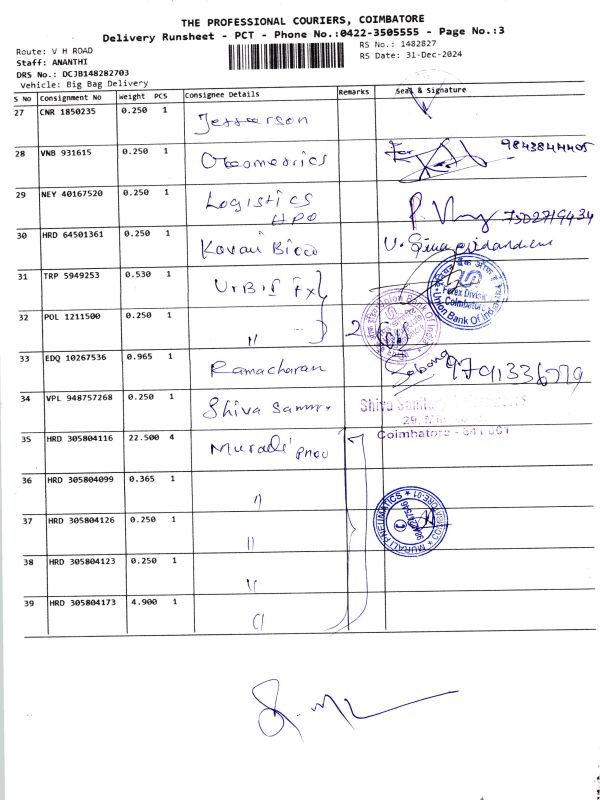 THE PROFESSIONAL COURIERS, COIMBATORE
Delivery Runsheet - PCT - Phone No.:0422-3505555 - Page No.:3
Route: V H ROAD
RS No.: 1482827
Staff: ANANTHI
RS Date: 31-Dec-2024
DRS No.: DCJB148282703
Vehicle: Big Bag Delivery
S No Consignment No Weight PCS Consignee Details Remarks Seal & Signature
27 CNR 1850235 0.250 1 Jefferson
28 VNB 931615 0.250 1 9843844405
29 NEY 40167520 0.250 1 Logistics
HPO 7502719434
30 HRD 64501361 0.250 1 Kovai
31 TRP 5949253 0.530 1 UrBIS Fx
Forex Division
Coimbatore
Union Bank Of India
32 POL 1211500 0.250 1 " 2
Union Bank Of India
33 EDQ 10267536 0.965 1 Ramacharan
34 VPL 948757268 0.250 1 Shiva
Shiva
Coimbatore - 641 001
35 HRD 305804116 22.500 4 Murali Pneu
36 HRD 305804099 0.365 1 "
37 HRD 305804126 0.250 1 "
MURALI PNEUMATICS * COIMBATORE-01 *
38 HRD 305804123 0.250 1 "
39 HRD 305804173 4.900 1 "